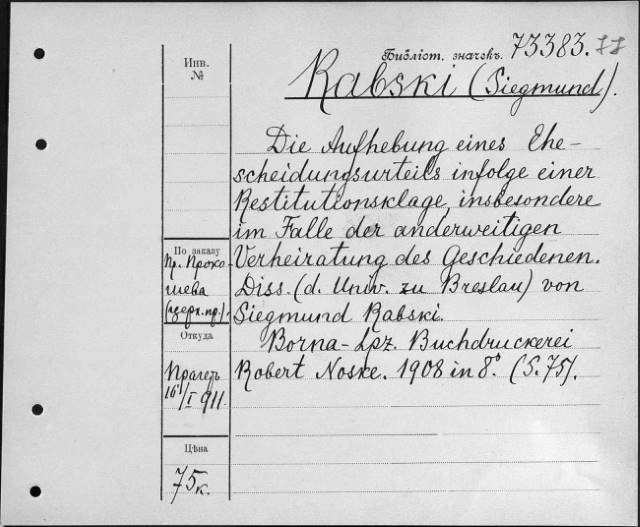 Инв.
№
Библіот. значекъ. 73383.
Rabski (Siegmund).
Die Aufhebung eines Ehe-
scheidungsurteils infolge einer
Restitutionsklage, insbesondere
im Falle der anderweitigen
Verheiratung des Geschiedenen.
Diss. (d. Univ. zu Breslau) von
Siegmund Rabski.
Borna-Lpz. Buchdruckerei
Robert Noske. 1908 in 8°. (S. 75).
По заказу
Пр. Прохо-
шева
(церк. пр.).
Откуда
Прагеръ
16/I 911.
Цѣна
75 к.